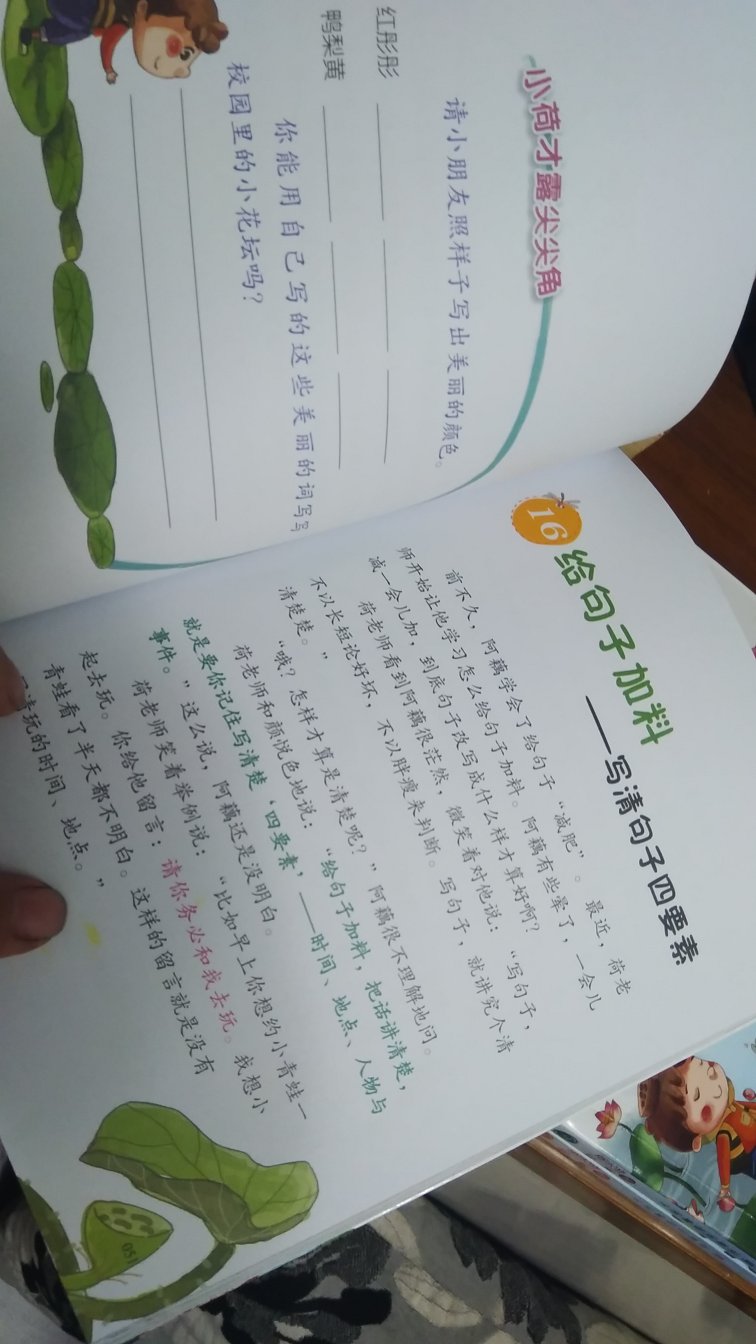 小荷才露尖尖角
请小朋友照样子写出美丽的颜色。
红彤彤
鸭梨黄
你能用自己写的这些美丽的词写写
校园里的小花坛吗?
16
给句子加料
——写清句子四要素
前不久,阿藕学会了给句子“减肥”。最近,荷老
师开始让他学习怎么给句子加料。阿藕有些晕了,一会儿
减一会儿加,到底句子改写成什么样才算好啊?
荷老师看到阿藕很茫然,微笑着对他说:“写句子,
不以长短论好坏,不以胖瘦来判断。写句子,就讲究个清
清楚楚。”
“哦?怎样才算是清楚呢?”阿藕很不理解地问。
荷老师和颜悦色地说:“给句子加料,把话讲清楚,
就是要你记住写清楚‘四要素’——时间、地点、人物与
事件。”这么说,阿藕还是没明白。
荷老师笑着举例说:“比如早上你想约小青蛙一
起去玩。你给他留言:请你务必和我去玩。我想小
青蛙看了半天都不明白。这样的留言就是没有
清玩的时间、地点。”
051